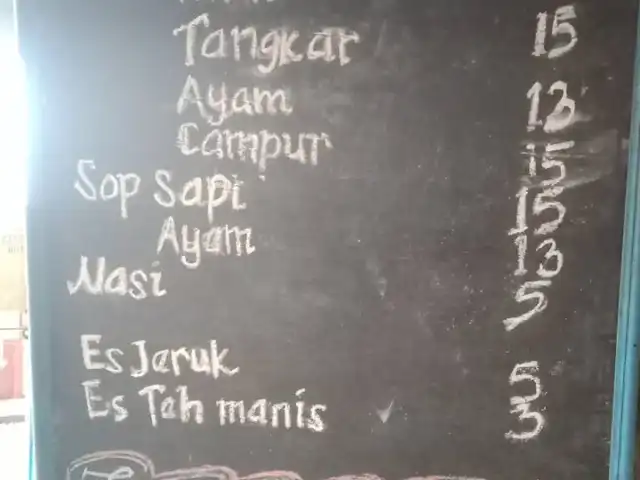 Tangkar 15
Ayam 13
Campur 15
Sop Sapi 15
Ayam 13
Nasi 5
Es Jeruk 5
Es Teh manis 3